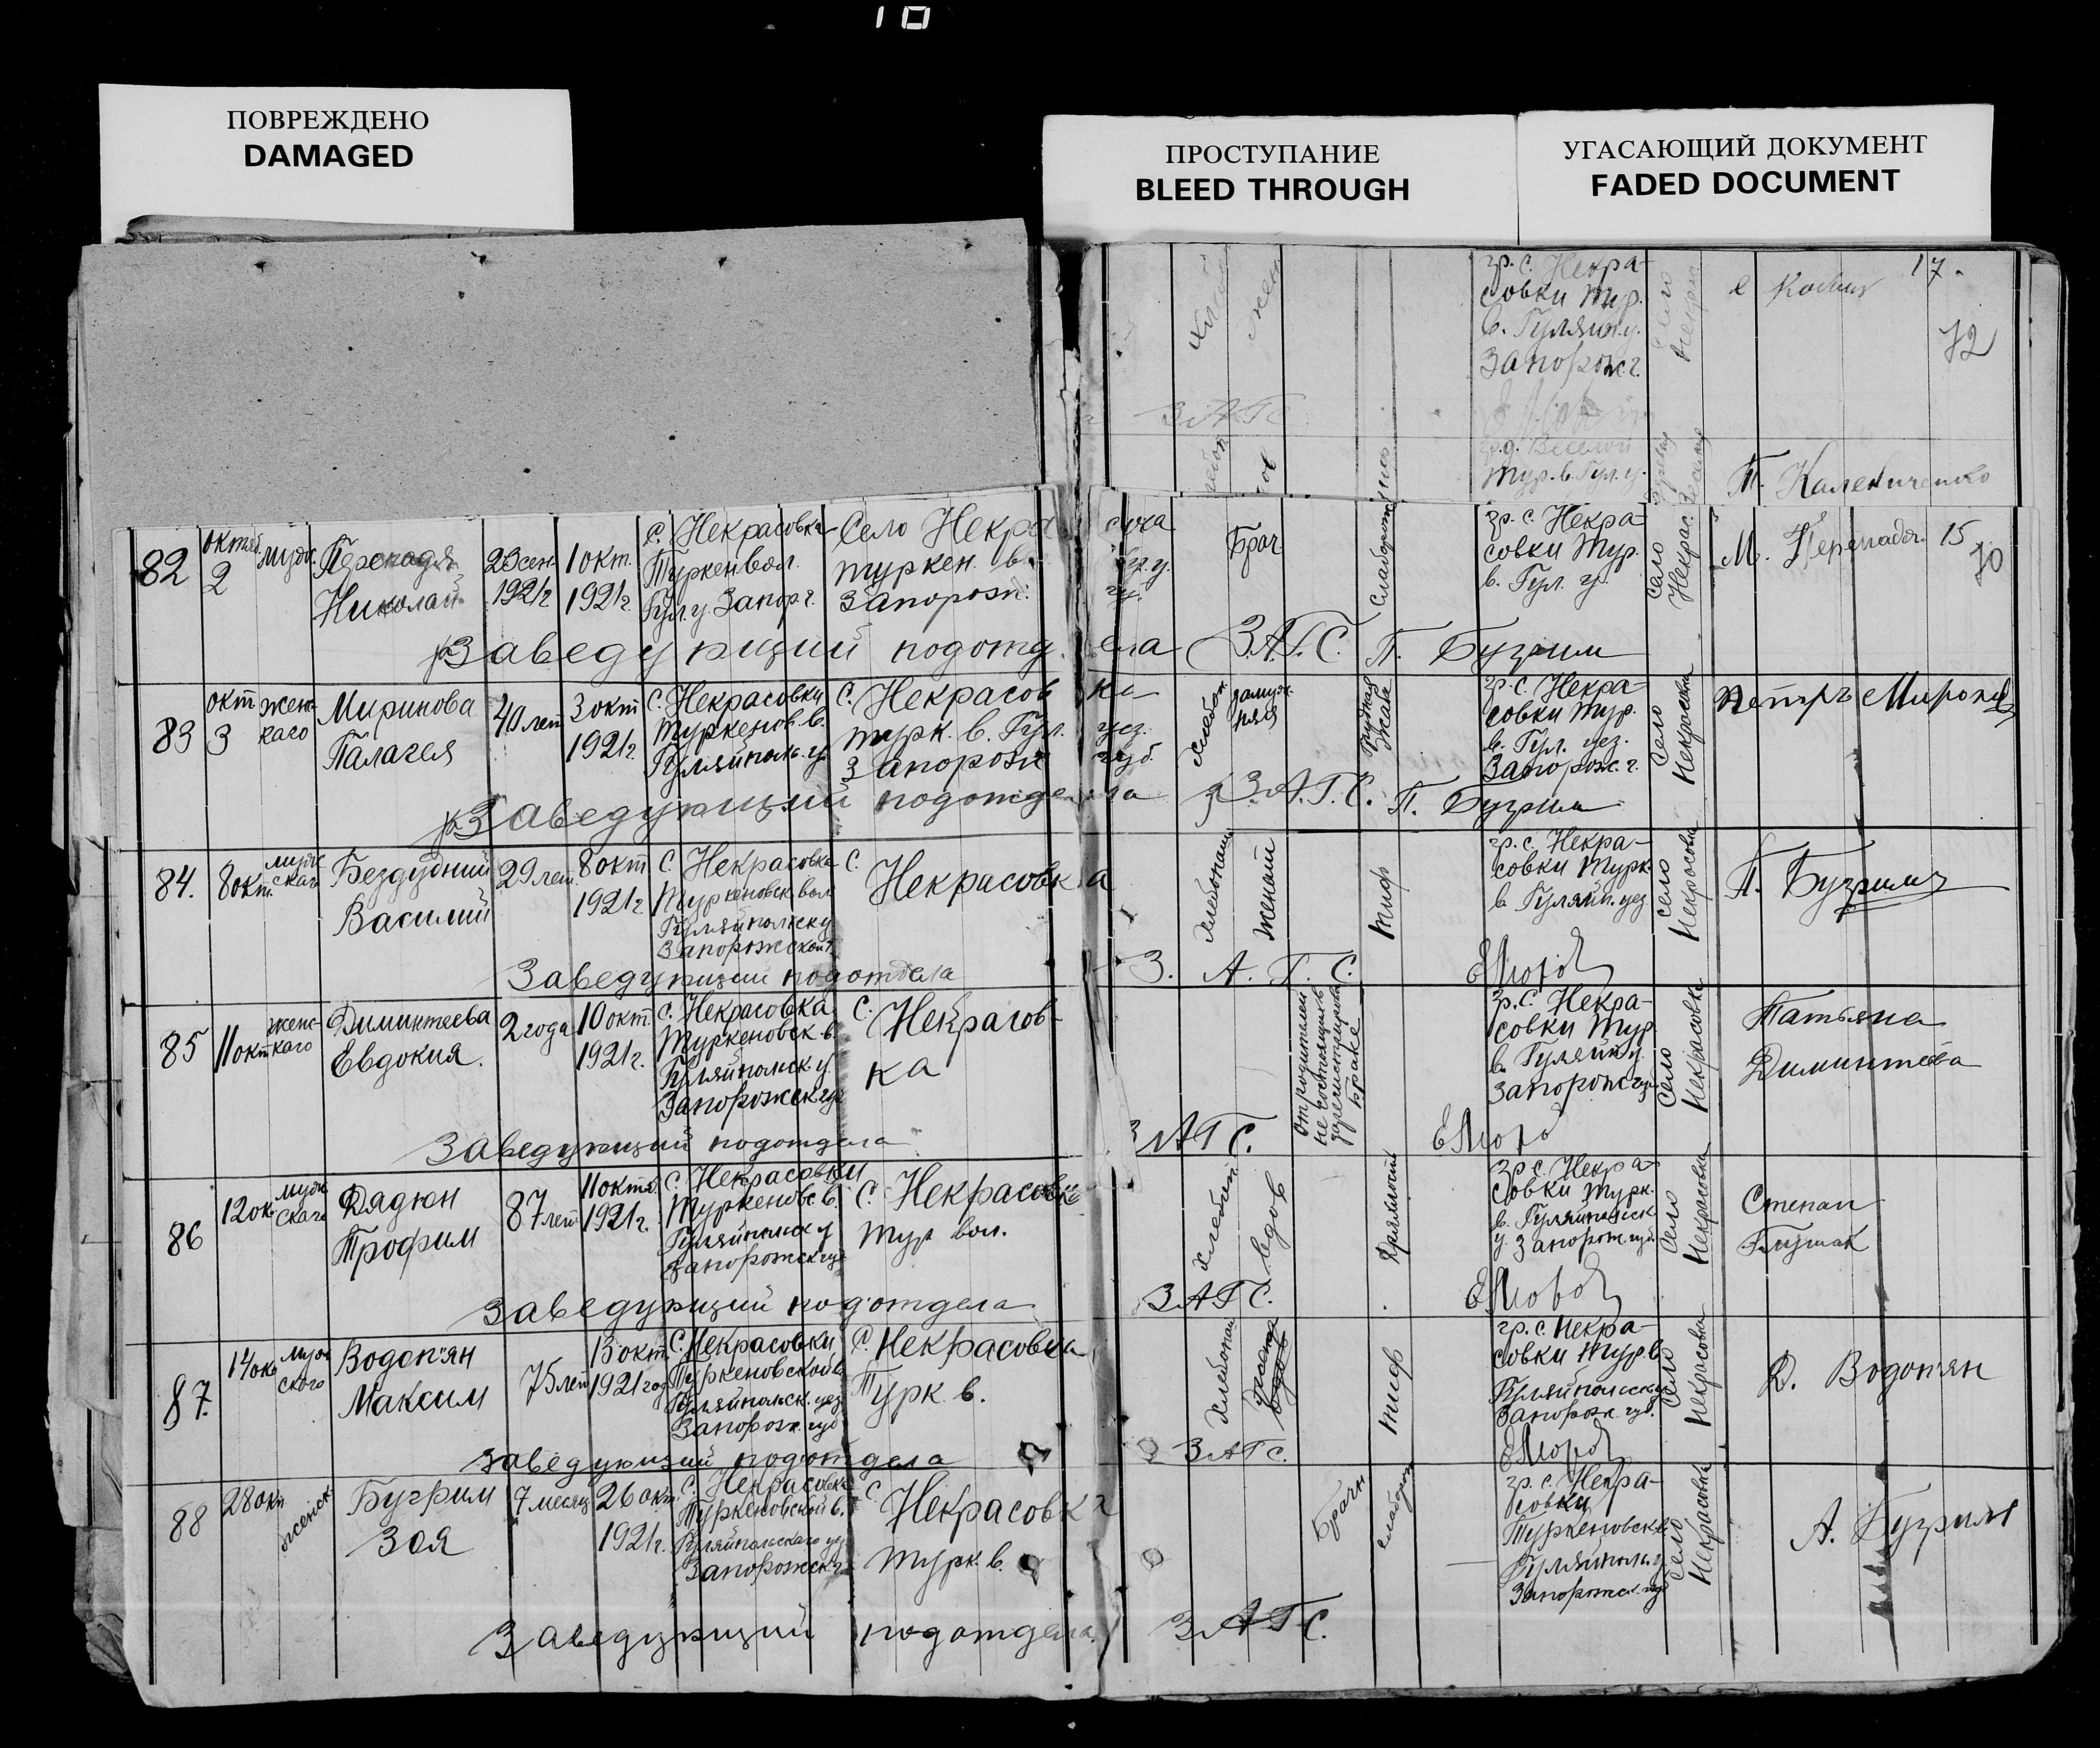 10
ПОВРЕЖДЕНО
DAMAGED
ПРОСТУПАНИЕ
BLEED THROUGH
УГАСАЮЩИЙ ДОКУМЕНТ
FADED DOCUMENT
17.
гр. с. Некра-
совки Тур.
в. Гуляйп. у.
Запорож г.
72
ЗАГС
гр. д. Веселой
Тур. в. Гул. у.
Т. Калениченко
82
октяб.
2
муж.
Николай
23 сен
1921 г
1 окт.
1921 г.
с. Некрасовка
Туркен. вол.
Гул. у. Запор. г.
Село Некра
туркен. в.
Запорож.
Брач
Слаборожд
гр. с. Некра
совки Тур.
в. Гул. у.
Село
Некрас.
М. 
15
70
Заведующий подотдела З.А.Г.С. П. Бугрим
83
окт
3
женс
каго
Миринова
Палагея
40 лет
3 окт
1921 г.
с. Некрасовки
Туркенов. в.
Гуляйполь. у.
с. Некрасовке
турк. в. Гул. уез.
Запорож губ.
хлебоп.
замуж
няя
Грудная
Жаба
гр. с. Некра-
совки Тур.
в. Гул. уез.
Запорож. г.
Село
Некрасовка
Петръ Миронов
Заведующий подотдела З.А.Г.С. П. Бугрим
84.
8 окт.
муж
скаго
Бездудний
Василий
29 лет.
8 окт.
1921 г
С. Некрасовка
Туркеновск. вол
Гуляйпольск у
Запорожской г.
с.
Некрасовка
Хлебопаш
Женат
Тиф
гр. с. Некра-
совки Турк.
в Гуляйп. уез
село
Некрасовка
П. Бугримъ
Заведующий подотдела З. А. Г. С.
85
11 окт
женс-
каго
Диминтеева
Евдокия.
2 года
10 окт.
1921 г.
с. Некрасовка
Туркеновск. в.
Гуляйпольск. у.
Запорожск. гу
с. Некрасов-
ка
От родителей
не состоящих в
зарегистрирова
Браке
гр. с. Некра-
совки Тур
в. Гуляйп у.
Запорож губ
Село
Некрасовка
Татьяна
Диминтеева
Заведующий подотдела ЗАГС.
86
12 ок
муж
скаго
Дядюн
Трофим
87 лет
11 октяб.
1921 г.
с. Некрасовки
Туркеновс. в.
Гуляйпольск у
Запорожск гу
с. Некрасовке
Тур вол.
Хлебоп
вдов
Дряхлость
гр с. Некра-
совки Турк.
в. Гуляйпольск
у. Запорож. губ.
Село
Некрасовка
Степан
Заведующий подотдела ЗАГС.
87.
14 ок
муж
ского
Водоп'ян
Максим
75 лет
13 окт.
1921 год
с. Некрасовки
Туркеновской в
Гуляйпольск. уез.
Запорож. губ
с. Некрасовка
Турк в.
Хлебопаш
Тиф
гр. с. Некра-
совки Тур в
Гуляйпольск у
Запорож. губ.
Село
Некрасовка
Д. Водоп'ян
заведующий подотдела ЗАГС.
88
28 окт
женск.
Бугрим
Зоя
7 месяц
26 окт.
1921 г.
с. Некрасовка
Туркеновской в.
Гуляйпольскаго уе
Запорожск. г.
с. Некрасовка
Турк. в.
Брачн
слаборож
гр. с. Некра-
совки
Туркеновск. в
Гуляйполь. у.
Запорожск. губ
Село
Некрасовка
А. Бугрим
Заведующий подотдела ЗАГС.